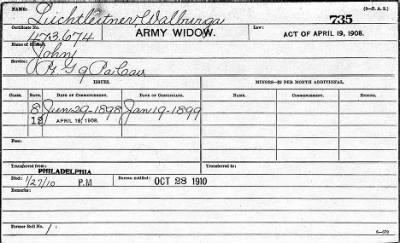 NAME: Lichtleitner Walburga
735
(3-P. A. S.)
Certificate No. 473,674
ARMY WIDOW.
Law: ACT OF APRIL 19, 1908.
Name of Soldier: John
Service: G Pa Cav
ISSUES. MINORS—$2 PER MONTH ADDITIONAL.
CLASS. RATE. DATE OF COMMENCEMENT. DATE OF CERTIFICATE. NAME. DATE OF COMMENCEMENT.
8 Jun 29-1898 Jan 19-1899
12 APRIL 19, 1908.
Fee:
Transferred from: PHILADELPHIA Transferred to:
Died: 1/27/10 P.M Bureau notified: OCT 28 1910
Remarks:
Former Roll No. 1